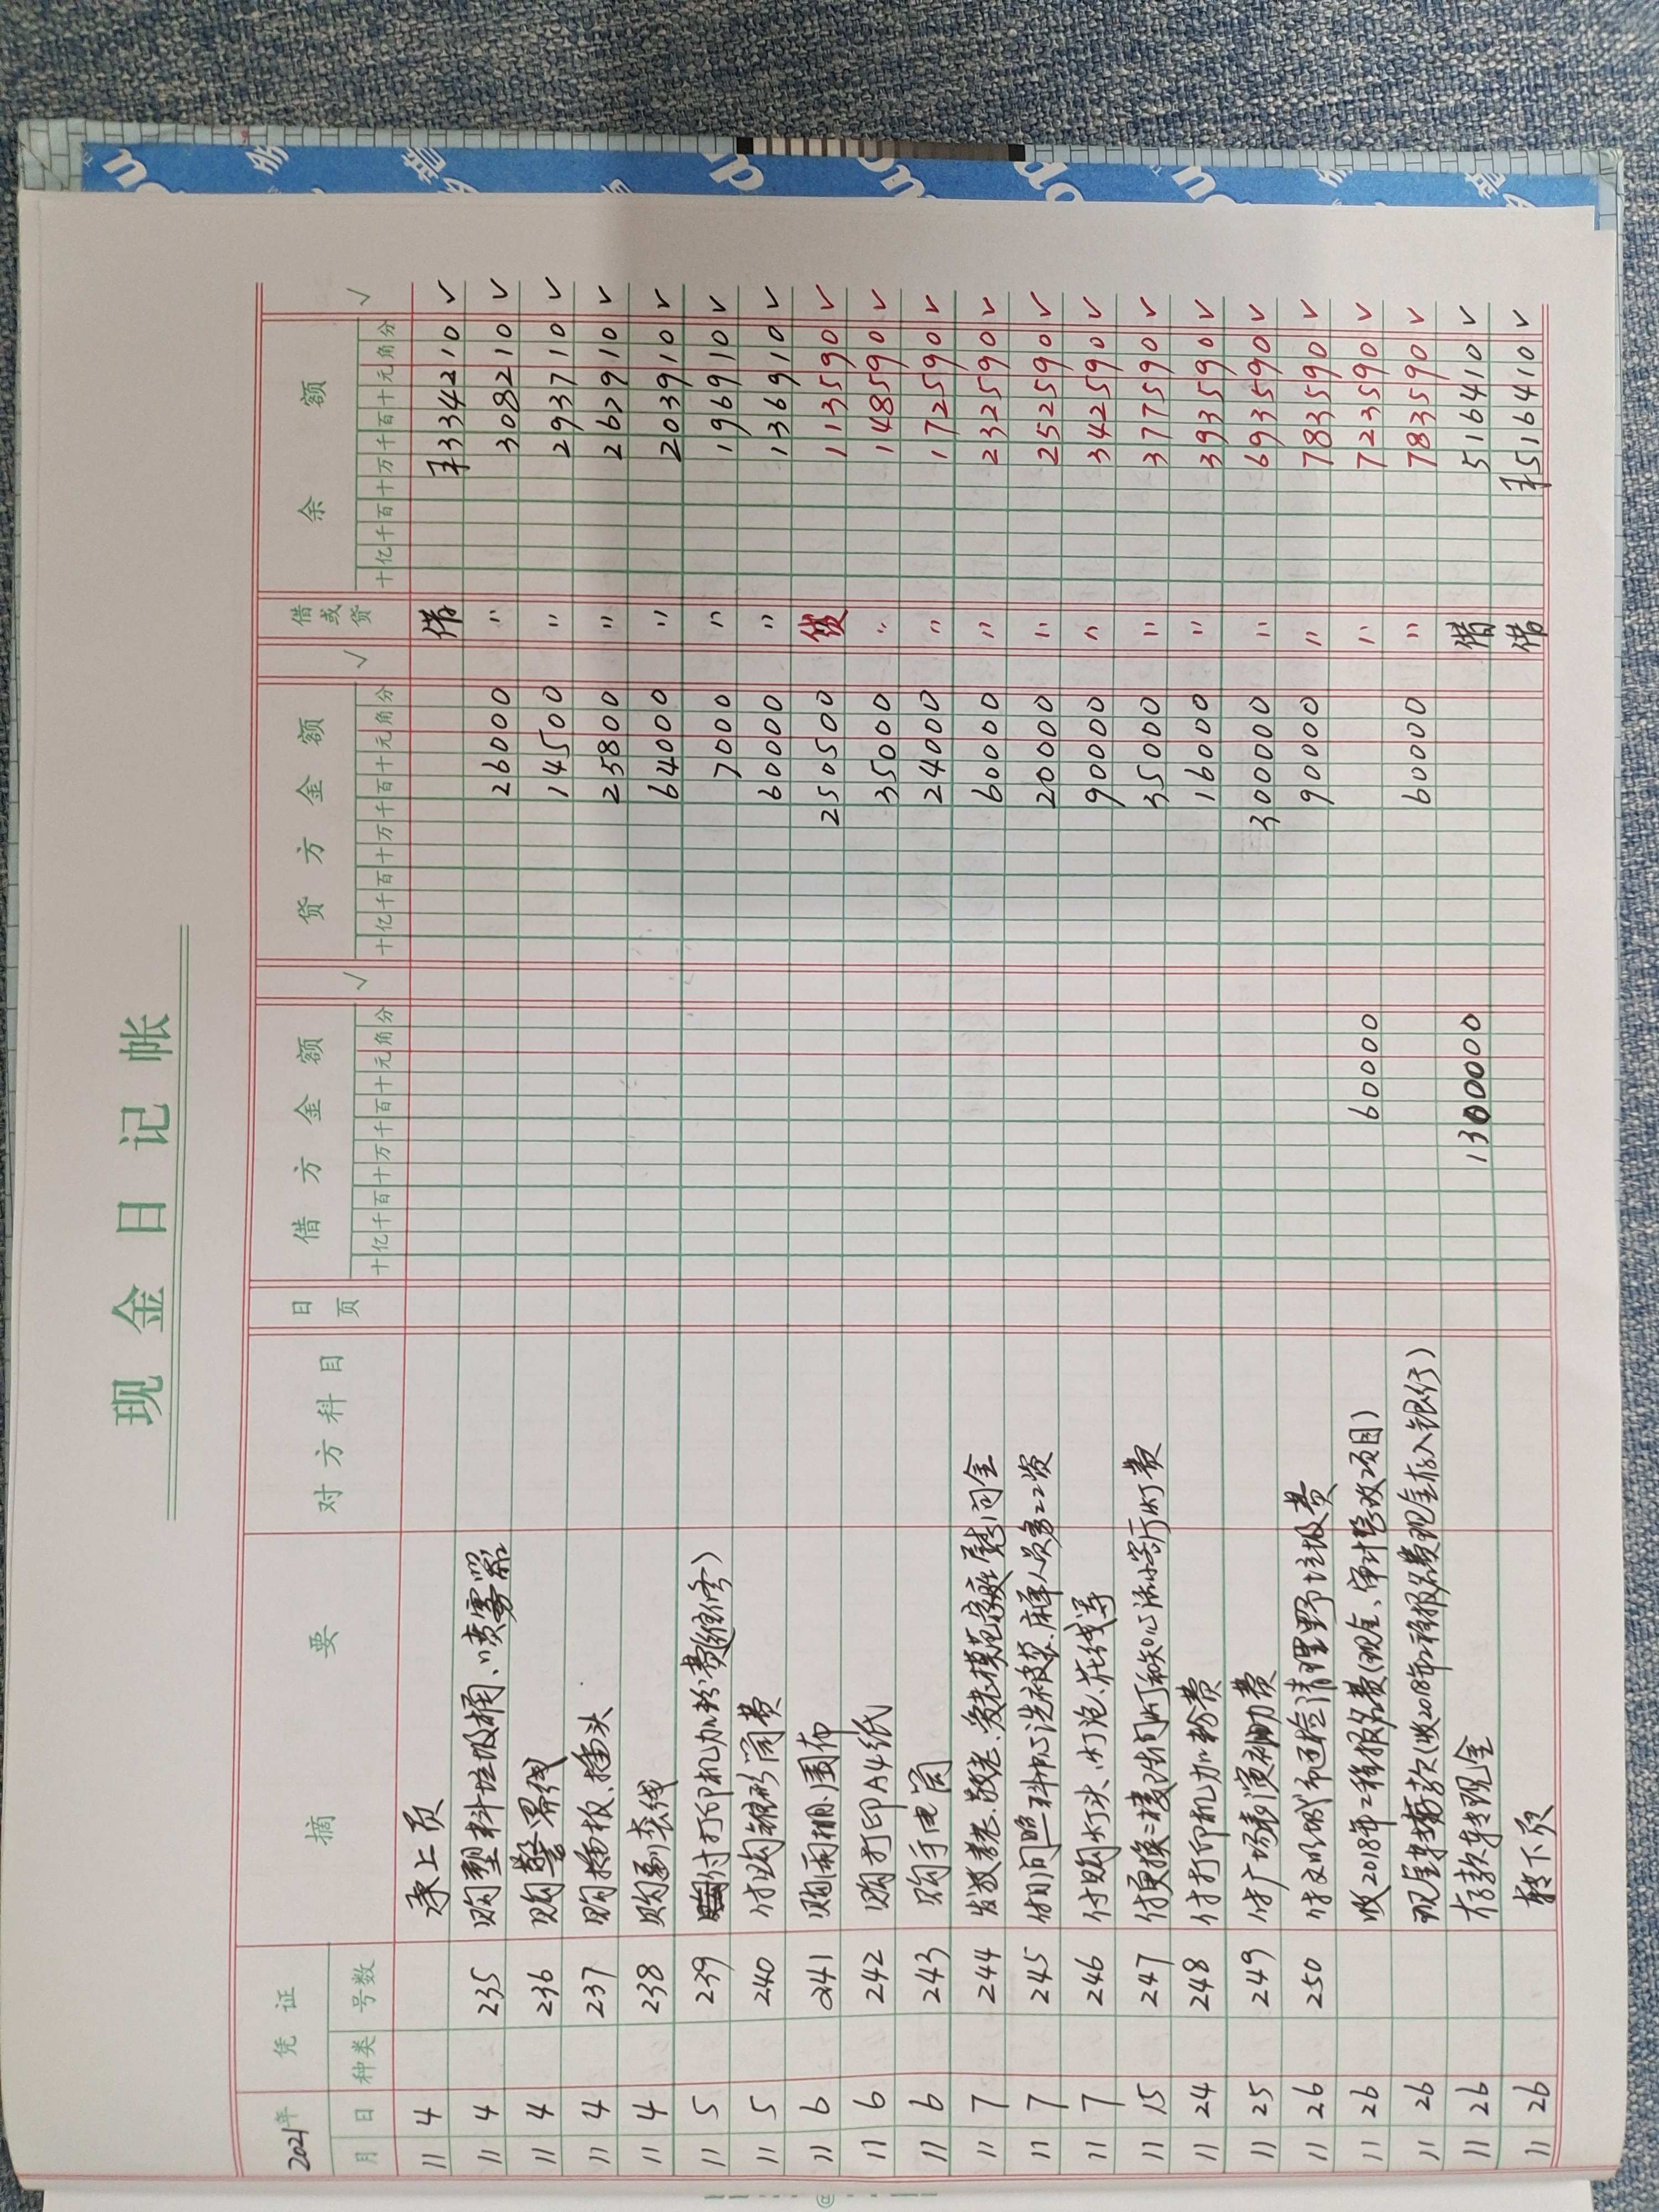 现金日记帐
2021年 凭证 摘要 对方科目 日页 借方金额 √ 贷方金额 √ 借或贷 余额 √
月 日 种类 号数 十亿千百十万千百十元角分 十亿千百十万千百十元角分 十亿千百十万千百十元角分
11 4 承上页 借 ¥334210 √
11 4 235 购塑料垃圾桶、喷雾器 26000 〃 308210 √
11 4 236 购警界线 14500 〃 293710 √
11 4 237 购插板、插头 25800 〃 267910 √
11 4 238 购网线 64000 〃 203910 √
11 5 239 付打印机加粉费(维修) 7000 〃 196910 √
11 5 240 付购锥形筒费 60000 〃 136910 √
11 6 241 购雨棚、围布 250500 贷 113590 √
11 6 242 购打印A4纸 35000 〃 148590 √
11 6 243 购手电筒 24000 〃 172590 √
11 7 244 发放敬老、爱老模范家庭慰问金 60000 〃 232590 √
11 7 245 付日间照料中心洗被罩、床单人员务工资 20000 〃 252590 √
11 7 246 付购灯头、灯泡、花线等 90000 〃 342590 √
11 15 247 付更换二楼时间灯和知心活小客厅灯费 35000 〃 377590 √
11 24 248 付打印机加粉费 16000 〃 393590 √
11 25 249 付广场表演补助费 300000 〃 693590 √
11 26 250 付文明城市迎检清理野垃圾费 90000 〃 783590 √
11 26 收2018年工程报名费(现金、审计整改项目) 60000 〃 723590 √
11 26 现金存款(收2018年工程报名费现金存入银行) 60000 〃 783590 √
11 26 存款转现金 1300000 借 516410 √
11 26 转下页 借 ¥516410 √